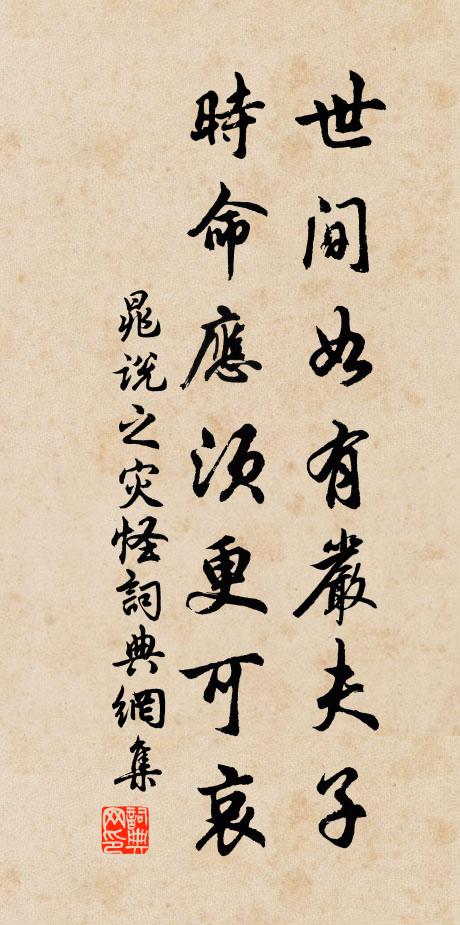 世間如有嚴夫子
時命應須更可哀
晁說之災怪詞典網集
詞典网印